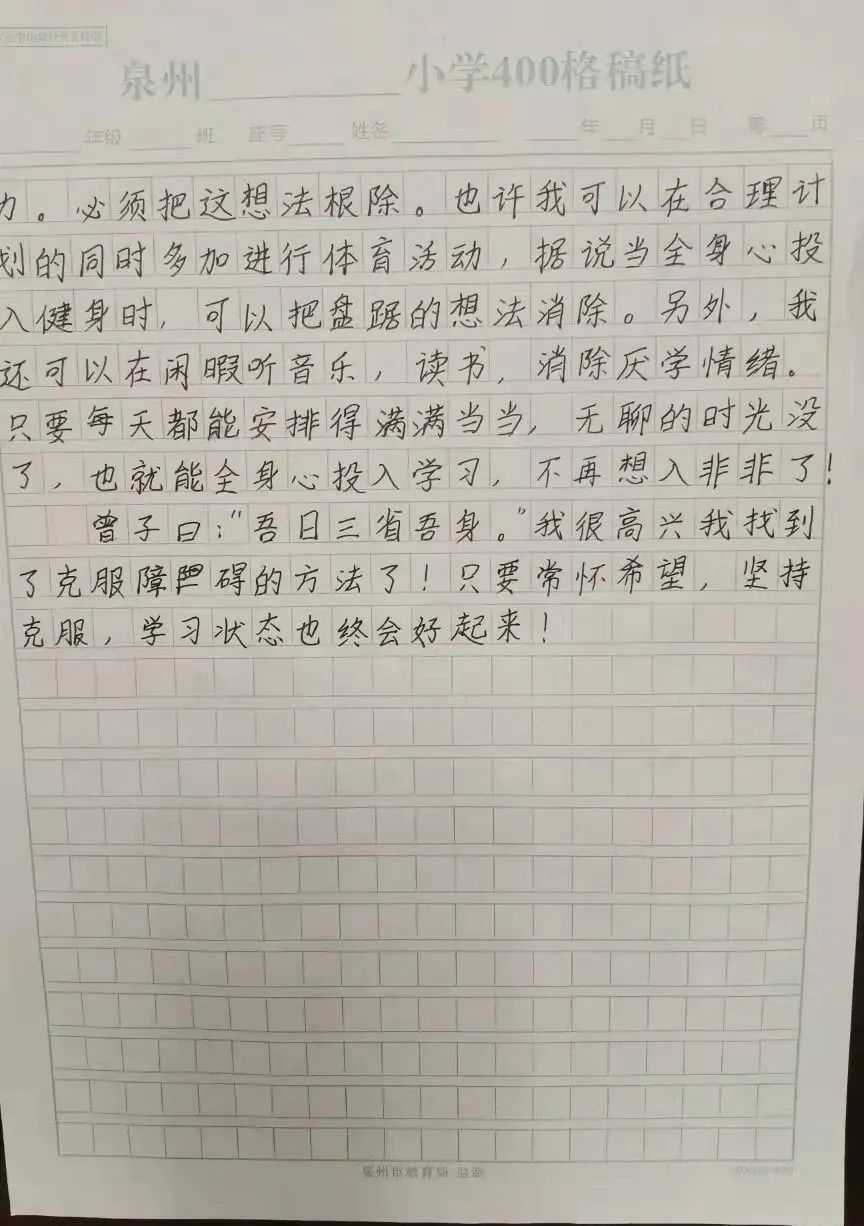 泉州 小学400格稿纸
年级 班 座号 姓名 年 月 日 第 页
力。必须把这想法根除。也许我可以在合理计
划的同时多加进行体育活动，据说当全身心投
入健身时，可以把盘踞的想法消除。另外，我
还可以在闲暇听音乐，读书，消除厌学情绪。
只要每天都能安排得满满当当，无聊的时光没
了，也就能全身心投入学习，不再想入非非了！
曾子曰：“吾日三省吾身。”我很高兴我找到
了克服障碍的方法了！只要常怀希望，坚持
克服，学习状态也终会好起来！
泉州市教育局 监制